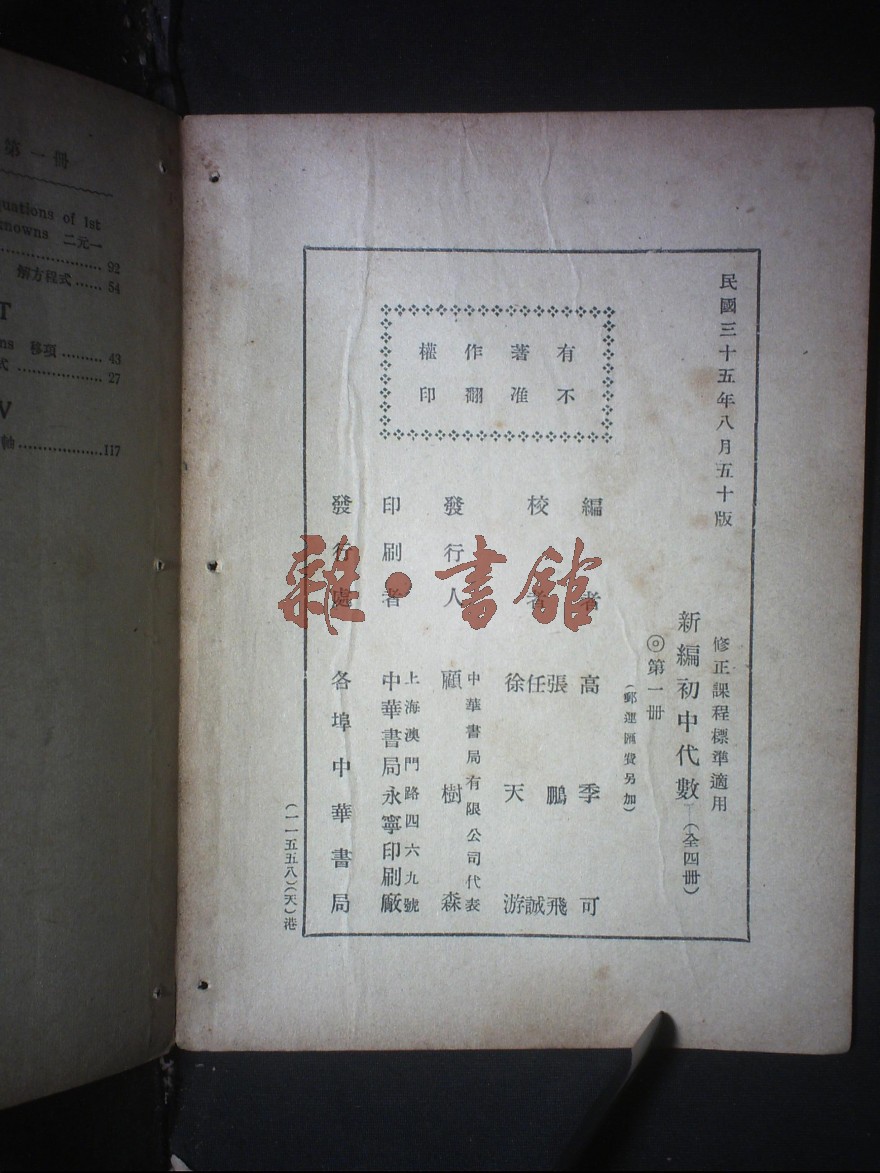 第一冊
quations of 1st
knowns 二元一
92
解方程式 54
T
ns 移項 43
式 27
V
軸 117
民國三十五年八月五十版
有著作權
不准翻印
修正課程標準適用
新編初中代數(全四冊)
◎第一冊
(郵運匯費另加)
編者 高季可
校者 張鵬飛
任誠
徐天游
發行人 中華書局有限公司代表
顧樹森
印刷者 上海澳門路四六九號
中華書局永寧印刷廠
發行處 各埠中華書局
(一一五五八)(天)港
雜·書館